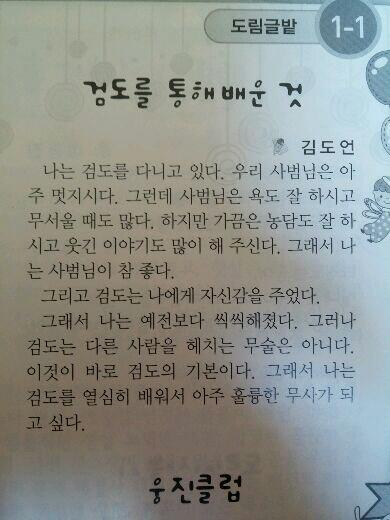 도림글밭
1-1
검도를 통해 배운 것
김도언
나는 검도를 다니고 있다. 우리 사범님은 아
주 멋지시다. 그런데 사범님은 욕도 잘 하시고
무서울 때도 많다. 하지만 가끔은 농담도 잘 하
시고 웃긴 이야기도 많이 해 주신다. 그래서 나
는 사범님이 참 좋다.
그리고 검도는 나에게 자신감을 주었다.
그래서 나는 예전보다 씩씩해졌다. 그러나
검도는 다른 사람을 헤치는 무술은 아니다.
이것이 바로 검도의 기본이다. 그래서 나는
검도를 열심히 배워서 아주 훌륭한 무사가 되
고 싶다.
웅진클럽